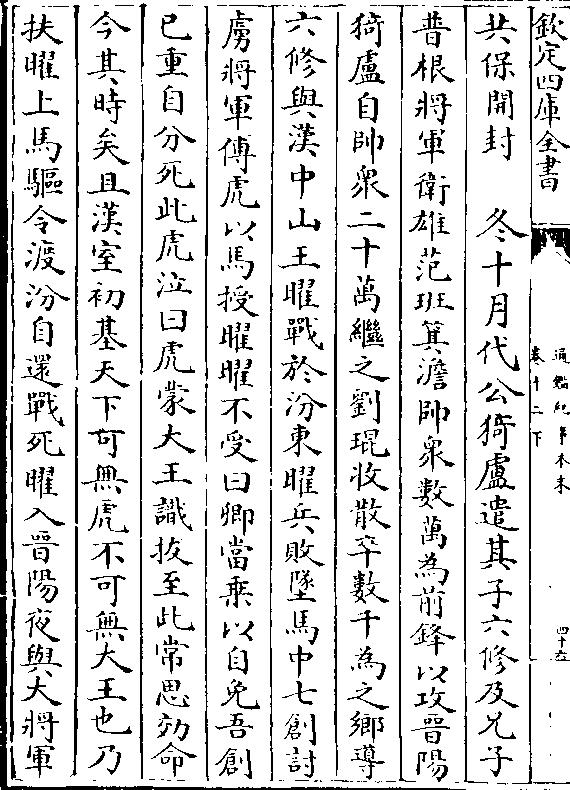 欽定四庫全書
通鑑紀事本末
卷十二下
共保開封　冬十月代公猗盧遣其子六修及兄子
普根將軍衛雄范班箕澹帥衆數萬為前鋒以攻晉陽
猗盧自帥衆二十萬繼之劉琨收散卒數千為之鄉導
六修與漢中山王曜戰於汾東曜兵敗墜馬中七創討
虜將軍傅虎以馬授曜曜不受曰卿當乗以自免吾創
已重自分死此虎泣曰虎蒙大王識拔至此常思効命
今其時矣且漢室初基天下可無虎不可無大王也乃
扶曜上馬驅令渡汾自還戰死曜入晉陽夜與大將軍